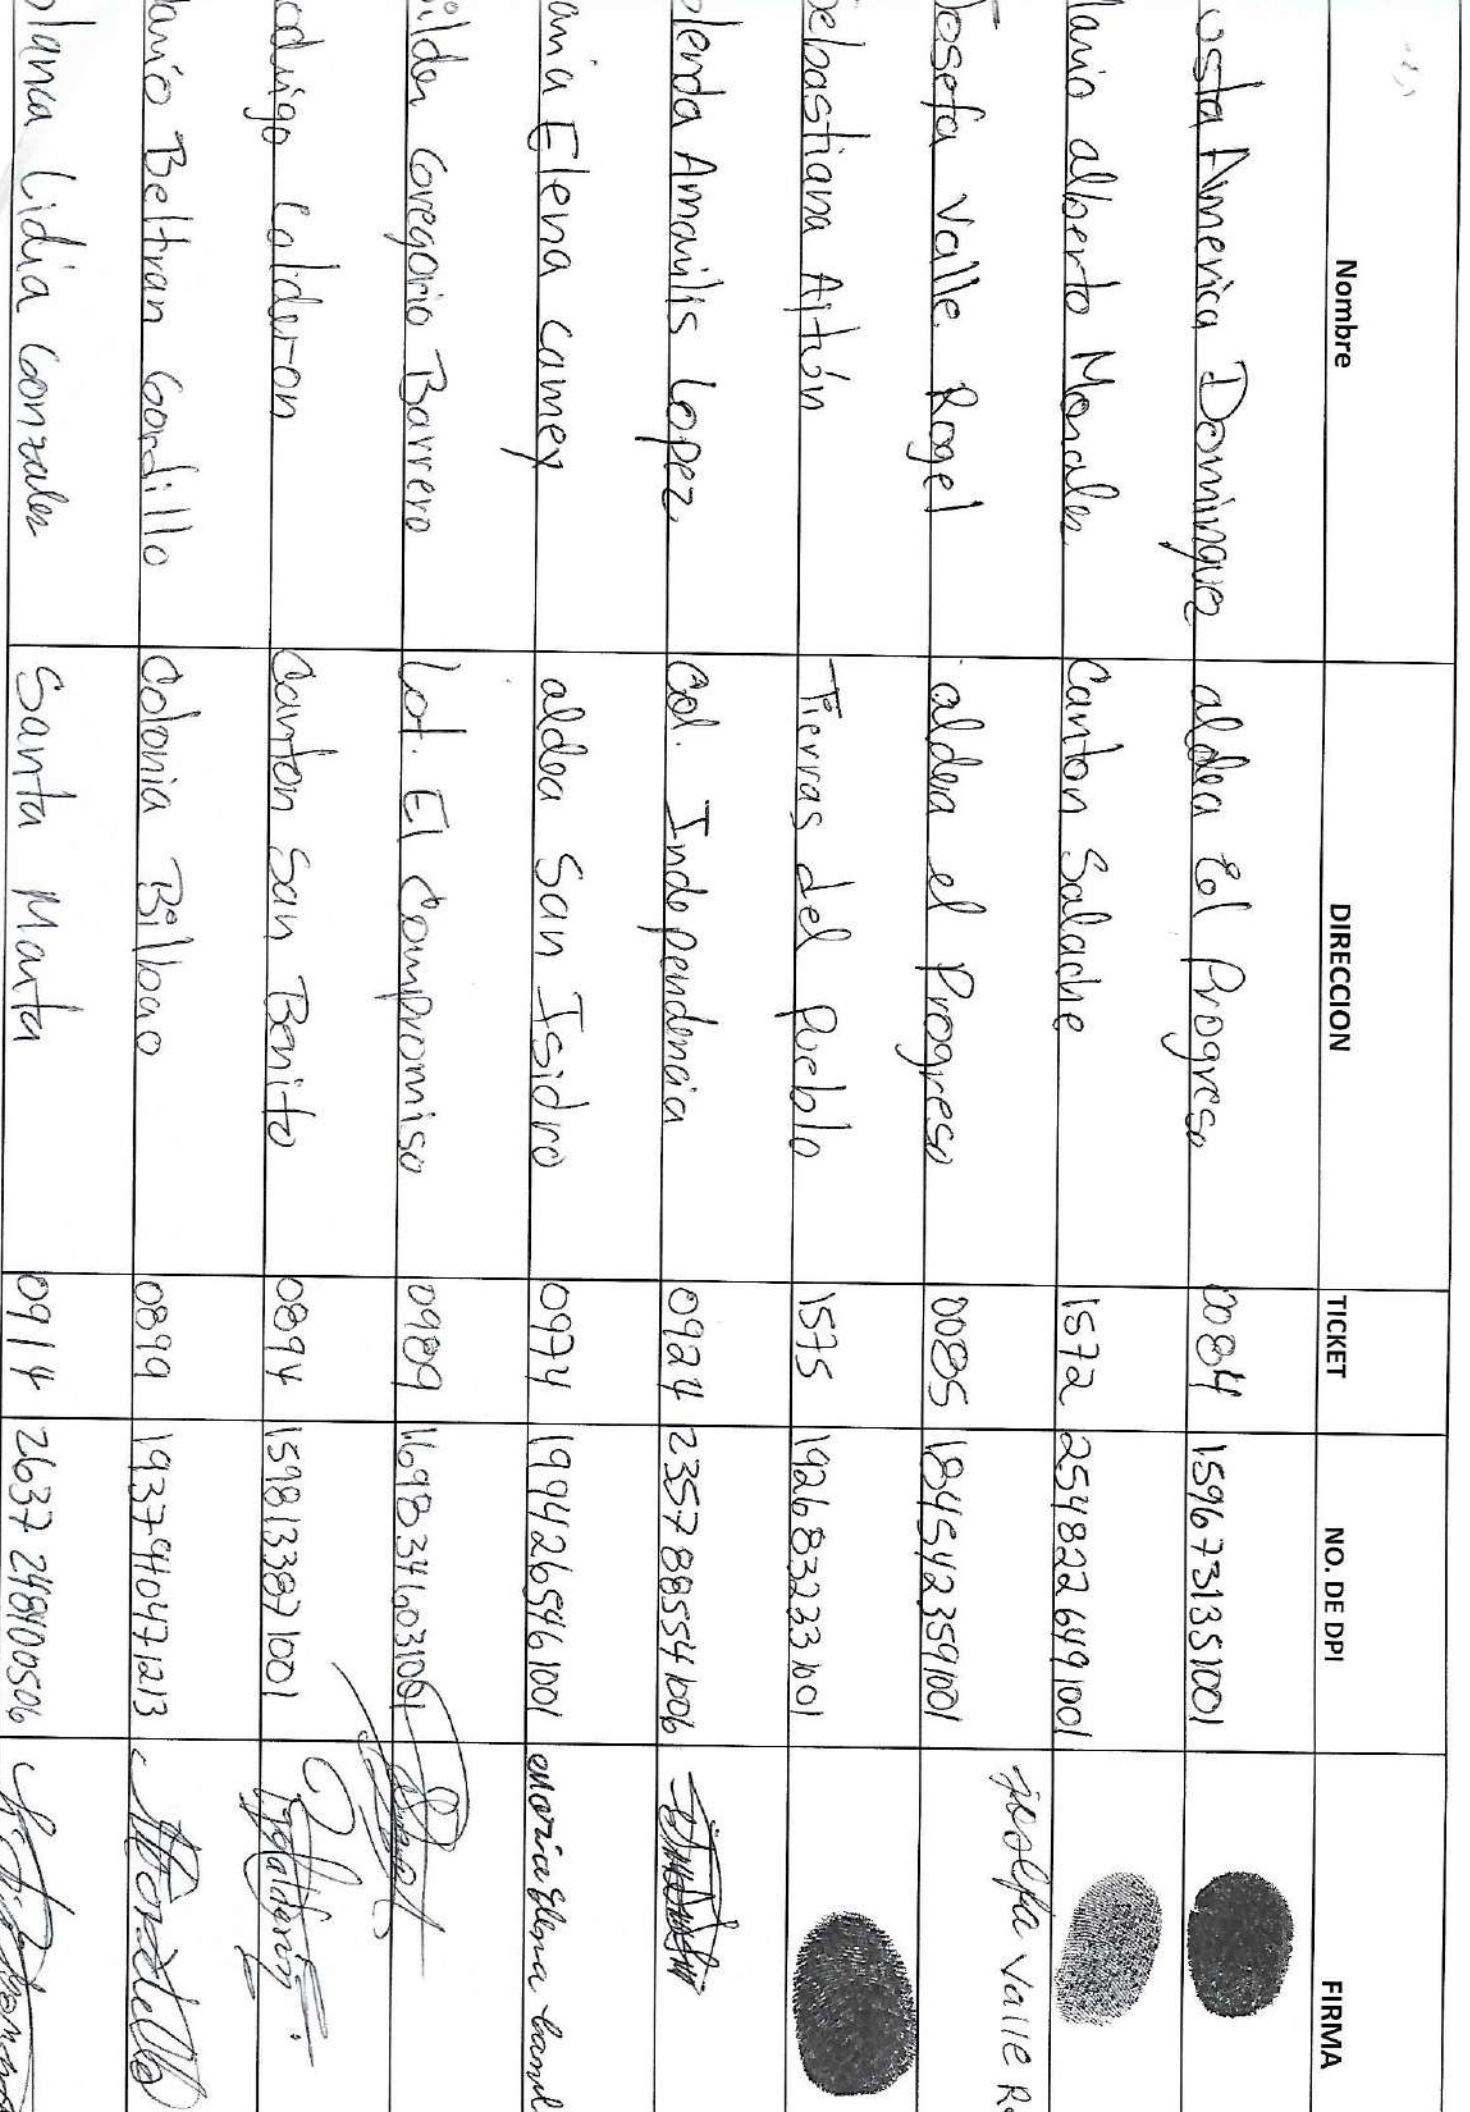 Nombre DIRECCION TICKET NO. DE DPI FIRMA
usta America Domingue aldea Eol Progreso 0084 1596731351001
lario alberto Morales Canton Salache 1572 2548222649 1001
Josefa Valle Rogel aldea el Progreso 0085 1845423591001 Josefa Valle R
Sebastiana Ajtún Tierras del Pueblo 1575 1926832331001
lenda Amarilis Lopez. Col. Independencia 0924 2357885541006
aria Elena Camey aldea San Isidro 0974 1994265461001 maria Elena Camē
ilder Gregorio Barrera Lot. El Compromiso 0989 1698346031001
odrigo Calderon Canton San Benito 0894 1598133871001
dario Beltran Gordillo Colonia Bilbao 0899 1937940471213
blanca Lidia Gonzales Santa Marta 0914 2637248400506